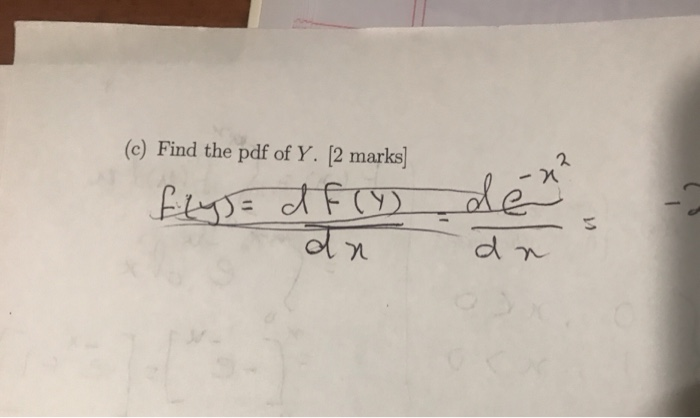 (c) Find the pdf of Y. [2 marks]
f(y) = dF(Y)/dx = de^-x²/dx = -2